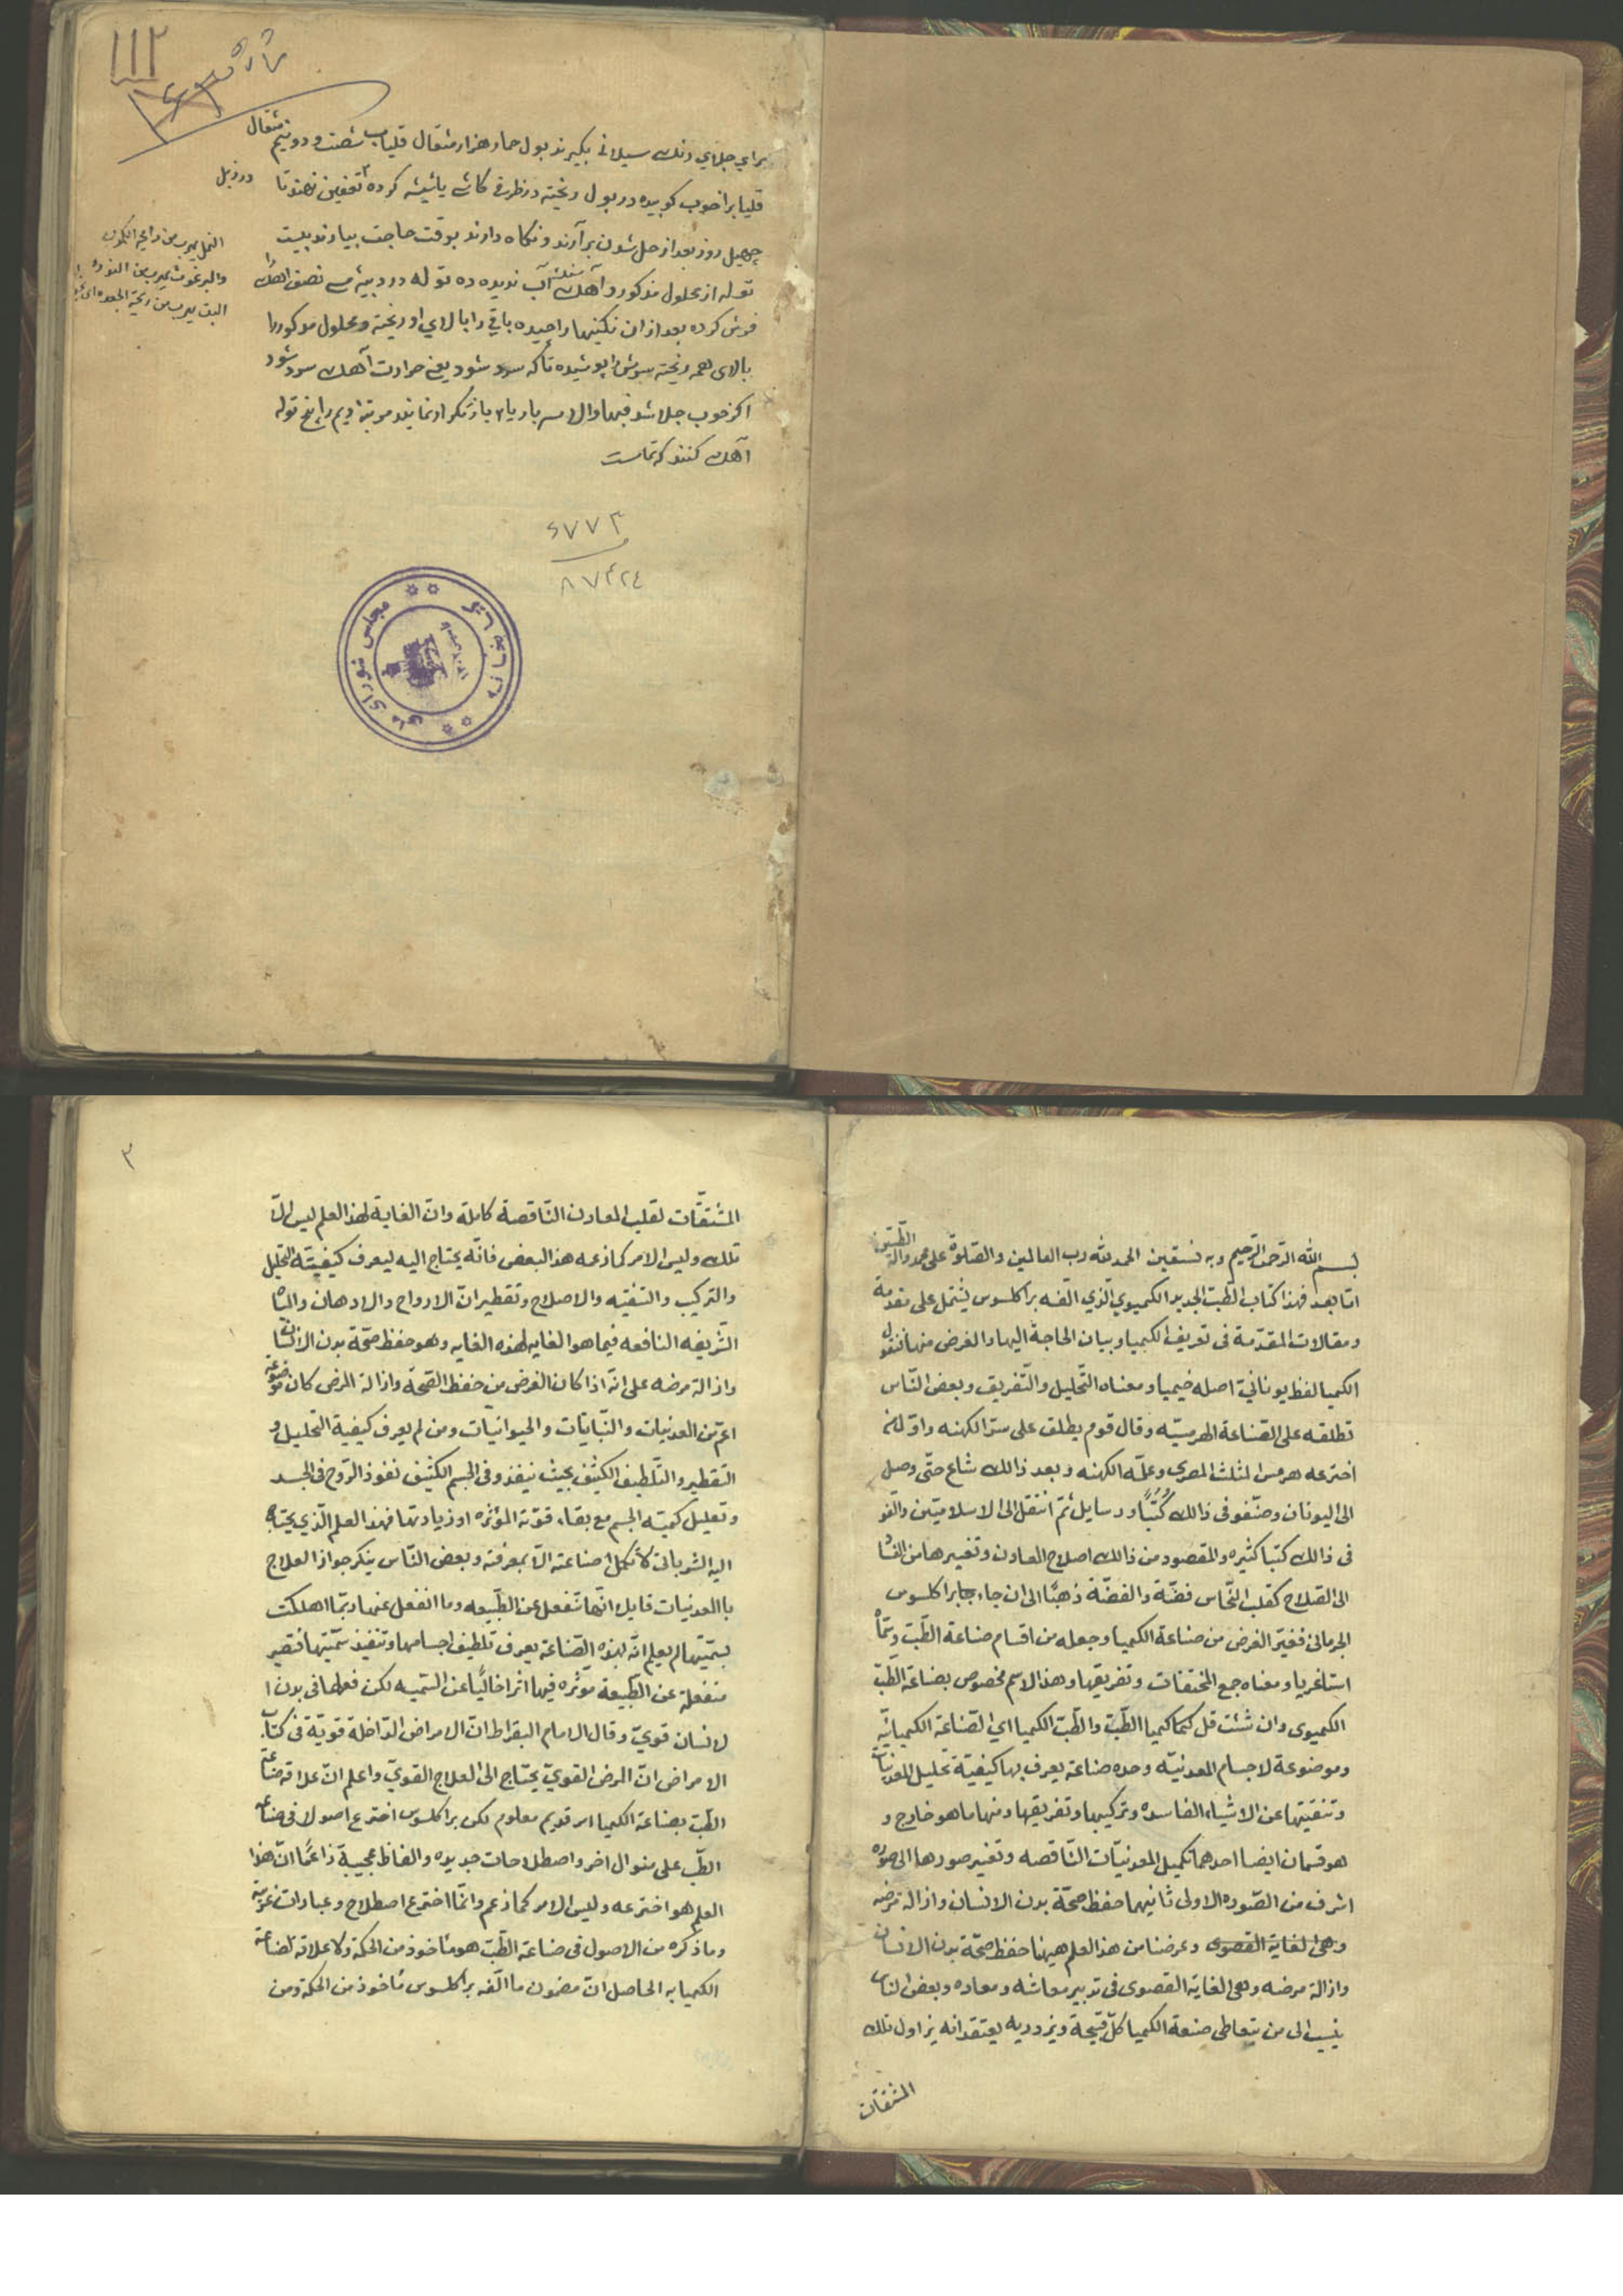 ١١٢
براي جلاي رنك سيلانى بكيرند بول حمار هزار مثقال قلياب شصت و دو نيم مثقال
قليا برا خوب كوبيده در بول ريخته در ظرف كاشى يا شيشه كرده
چهل روز بعد از حل شدن برآرند و نكاه دارند بوقت حاجت بيارند بيست
توله از محلول مذكور و آهك آب نديده ده توله در
فرش كرده بعد از ان نكينها را چيده باقي را بالاي او ريخته و محلول مذكور را
بالاى همه ريخته سرش را پوشيده تا كه سرد شود يعنى حرارت آهك سرد شود
اكر خوب جلا شد فبها والا سه بار يا ۴ بار تكرار نمايند مرتبه دويم را پنج توله
آهك كنند كه تماست
النمل يهرب من رايحة الكمون
والبرغوث يهرب من
البق يهرب من
٨٧٣٢٤
مجلس شوراى ملى
كتابخانه
بسم الله الرحمن الرحيم وبه نستعين الحمد لله رب العالمين والصلوة على محمد وآله الطيبين
اما بعد فهذا كتاب الطب الجديد الكيميوي الذي الفه براكلسوس يشتمل على مقدمة
ومقالات المقدمة فى تعريف الكيميا وبيان الحاجة اليها والغرض منها فنقول
الكيميا لفظ يوناني اصله خيميا ومعناه التحليل والتفريق وبعض الناس
تطلقه على الصناعة الهرمسيه وقال قوم يطلق على سر الكهنه واول من
اخترعه هرمس المثلث المصرى وعلمه الكهنه وبعد ذالك شاع حتى وصل
الى اليونان وصنفو فى ذالك كتبا ورسايل ثم انتقل الى الاسلاميين والفو
فى ذالك كتبا كثيره والمقصود من ذالك اصلاح المعادن وتغييرها من الفساد
الى الصلاح كقلب النحاس فضة والفضة ذهبا الى ان جاء براكلسوس
الجرمانى فغير الغرض من صناعة الكيميا وجعله من اقسام صناعة الطب وسماه
اسباغريا ومعناه جمع المختلفات وتفريقها وهذا الاسم مخصوص بصناعة الطب
الكيميوى وان شئت قل كيميا الطب والطب الكيميا اي الصناعة الكيميائية
وموضوعه الاجسام المعدنيه وحده صناعة يعرف بها كيفية تحليل المعدنيات
وتنقيتها عن الاشياء الفاسده وتركيبها وتفريقها ومنها ما هو خارج و
هو قسمان ايضا احدهما تكميل المعدنيات الناقصه وتغيير صورها الى صوره
اشرف من الصوره الاولى ثانيهما حفظ صحة بدن الانسان وازالة مرضه
وهى الغاية القصوى وغرضنا من هذ العلم هيهنا حفظ صحة بدن الانسان
وازالة مرضه وهى الغاية القصوى فى تدبير معاشه ومعاده وبعض الناس
ينسب الى من يتعاطى صنعة الكيميا كل قبيحة ويزدريه يعتقد انه يزاول تلك
المشقات
٣
المشقات لقلب المعادن الناقصة كاملة وان الغاية لهذ العلم ليس الا
تلك وليس الامر كما زعمه هذ البعض فانه يحتاج اليه ليعرف كيفية التحليل
والتركيب والتنقيه والاصلاح وتقطيران الارواح والادهان والمياه
الشريفه النافعه فيما هو الغايه لهذه الغايه وهو حفظ صحة بدن الانسان
وازالة مرضه على انه اذا كان الغرض من حفظ الصحة وازالة المرض كان موضوعه
اعم من المعدنيات والنباتات والحيوانيات ومن لم يعرف كيفية التحليل و
التقطير والتلطيف الكثيف بحيث ينفذ فى الجسم الكثيف نفوذ الروح فى الجسد
وتقليل كمية الجسم مع بقاء قوته المؤثره او زيادتها فهذ العلم الذي يحتاج
اليه لا تكمل صناعته الا بمعرفته وبعض الناس ينكر جواز العلاج
باالمعدنيات قايلا انها تنفعل عن الطبيعه وما انفعل عنها ربما اهلكت
بسميتها لم يعلم انه بهذه الصناعة يعرف تلطيف اجسامها وتنفيذ سميتها فتصير
منفعلة عن الطبيعة مؤثره فيها اثرا خاليا عن السميه لكن فعلها فى بدن ا
لانسان قوي وقال الامام البقراط ان الامراض الداخلة قوية فى كتاب
الامراض ان المرض القوي يحتاج الى العلاج القوي واعلم ان علاقة صناعة
الطب بصناعة الكيميا امر قديم معلوم لكن براكلسوس اخترع اصولا فى صناعة
الطب على منوال اخر واصطلاحات جديده والفاظ عجيبة زاعما ان هذا
العلم هو اخترعه وليس الامر كما زعم وانما اخترع اصطلاح وعبارات غريبة
وما ذكره من الاصول فى صناعة الطب هو ماخوذ من الحكمة ولا علاقة لصناعة
الكيميا به الحاصل ان مضمون ما الفه براكلسوس ماخوذ من الحكمة ومن